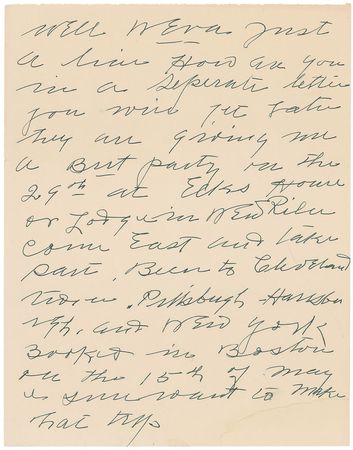 Well WEva Just
a line How are you
in a Seperate letter
you will get later
they are giving me
a Birt party on the
29th at Elks Home
or Lodge in NEW
come East and take
part. Been to Cleveland
Pittsbugh Harrisbu
rgh. and NEW YORK
Booked in Boston
on the 15th of May
want to make
hat